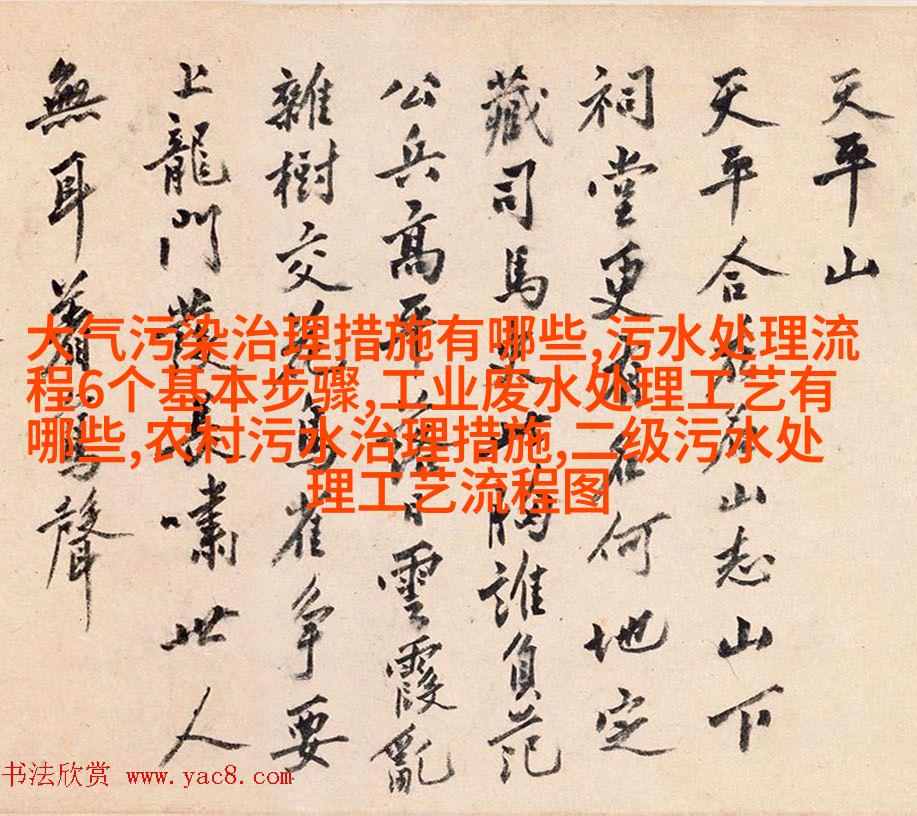 天平山
天平合山志山下
祠堂更名何地定
藏司馬胸誰負范
公兵高平雲霞亂
雜樹交花鳥雀爭要
上龍門發長嘯世人
無耳着聲
大气污染治理措施有哪些,污水处理流
程6个基本步骤,工业废水处理工艺有
哪些,农村污水治理措施,二级污水处
理工艺流程图
书法欣赏 www.yac8.com